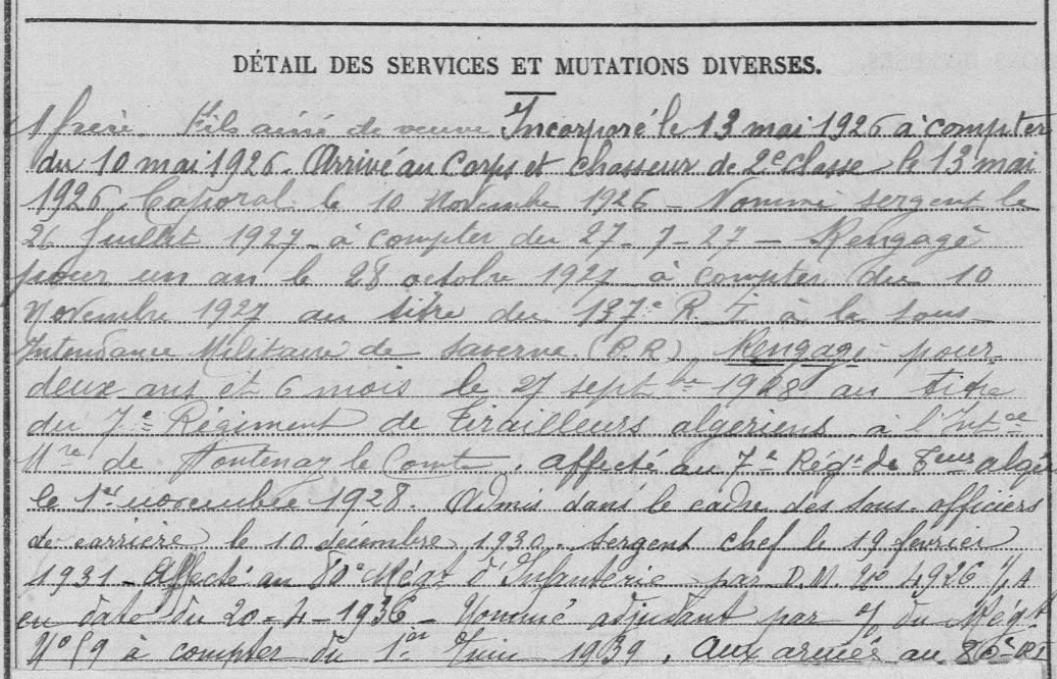 DÉTAIL DES SERVICES ET MUTATIONS DIVERSES.
1 frère. Fils ainé de veuve Incorporé le 13 mai 1926 à compter
du 10 mai 1926. Arrivé au Corps et chasseur de 2e classe le 13 mai
1926. Caporal le 10 Novembre 1926 - Nommé sergent le
26 Juillet 1927 - à compter du 27-7-27 - Rengagé
pour un an le 28 octobre 1927 à compter du 10
Novembre 1927 au titre du 137e R.I à la Sous-
Intendance Militaire de Saverne (P.R) Rengagé pour
deux ans et 6 mois le 27 septbre 1928 au titre
du 7e Régiment de Tirailleurs algériens à l'Intce
Mre de Fontenay le Comte. affecté au 7e Régt de Teurs algé
le 1er novembre 1928. Admis dans le cadre des sous-officiers
de carrière le 10 décembre 1930. Sergent chef le 19 février
1931 - Affecté au 80e Régt d'Infanterie par D.M. No 4926 1/A
en date du 20-4-1936 - Nommé adjudant par O/ du Régt
No 59 à compter du 1er Juin 1939. Aux armées au 80e RI